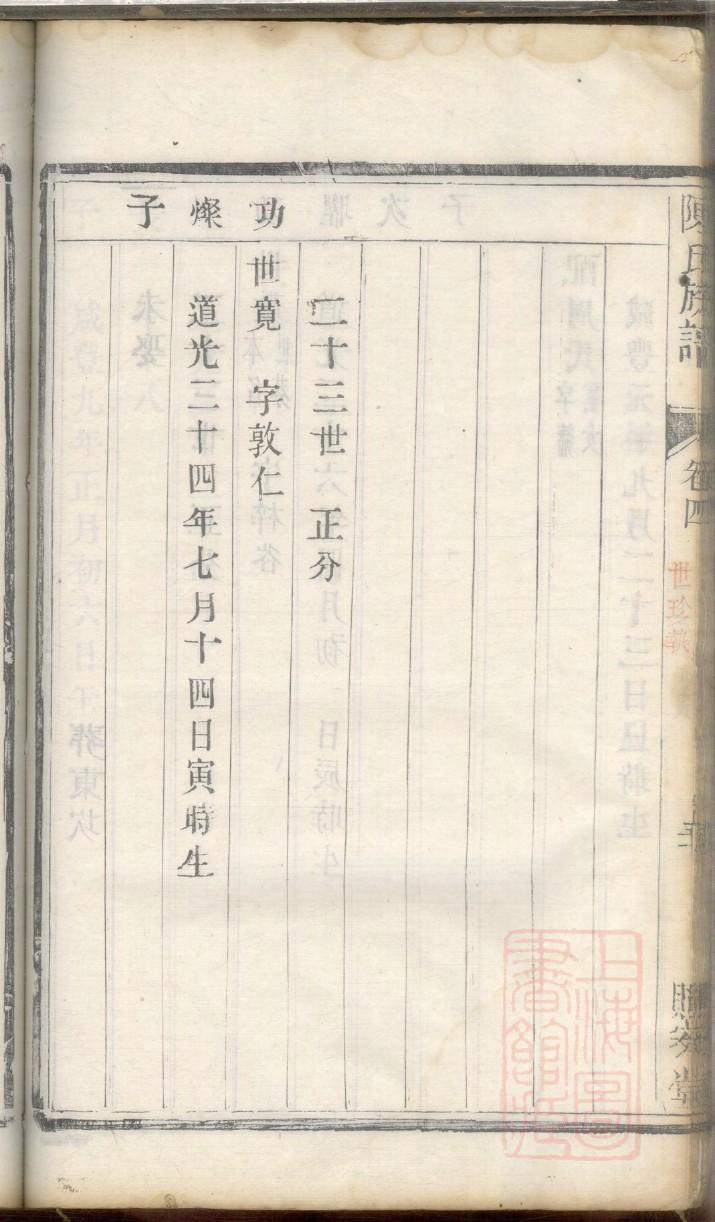 陳氏族譜
卷四
世珍執
功燦子
二十三世 正分
世寬 字敦仁
道光二十四年七月十四日寅時生
上海圖書館藏